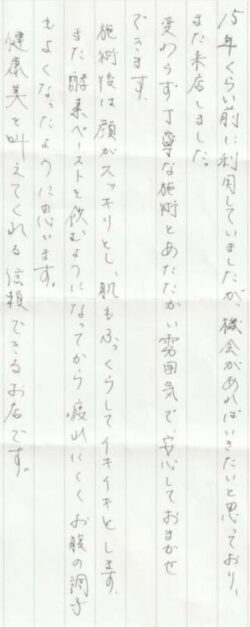 15年くらい前に利用していましたが、機会があればいきたいと思っており、
また来店しました。
変わらず丁寧な施術とあたたかい雰囲気で、安心しておまかせ
できます。
施術後は顔がスッキリとし、肌もふっくらしてイキイキとします。
また酵素ペーストを飲むようになってから、疲れにくくお腹の調子
もよくなったように思います。
健康美を叶えてくれる信頼できるお店です。